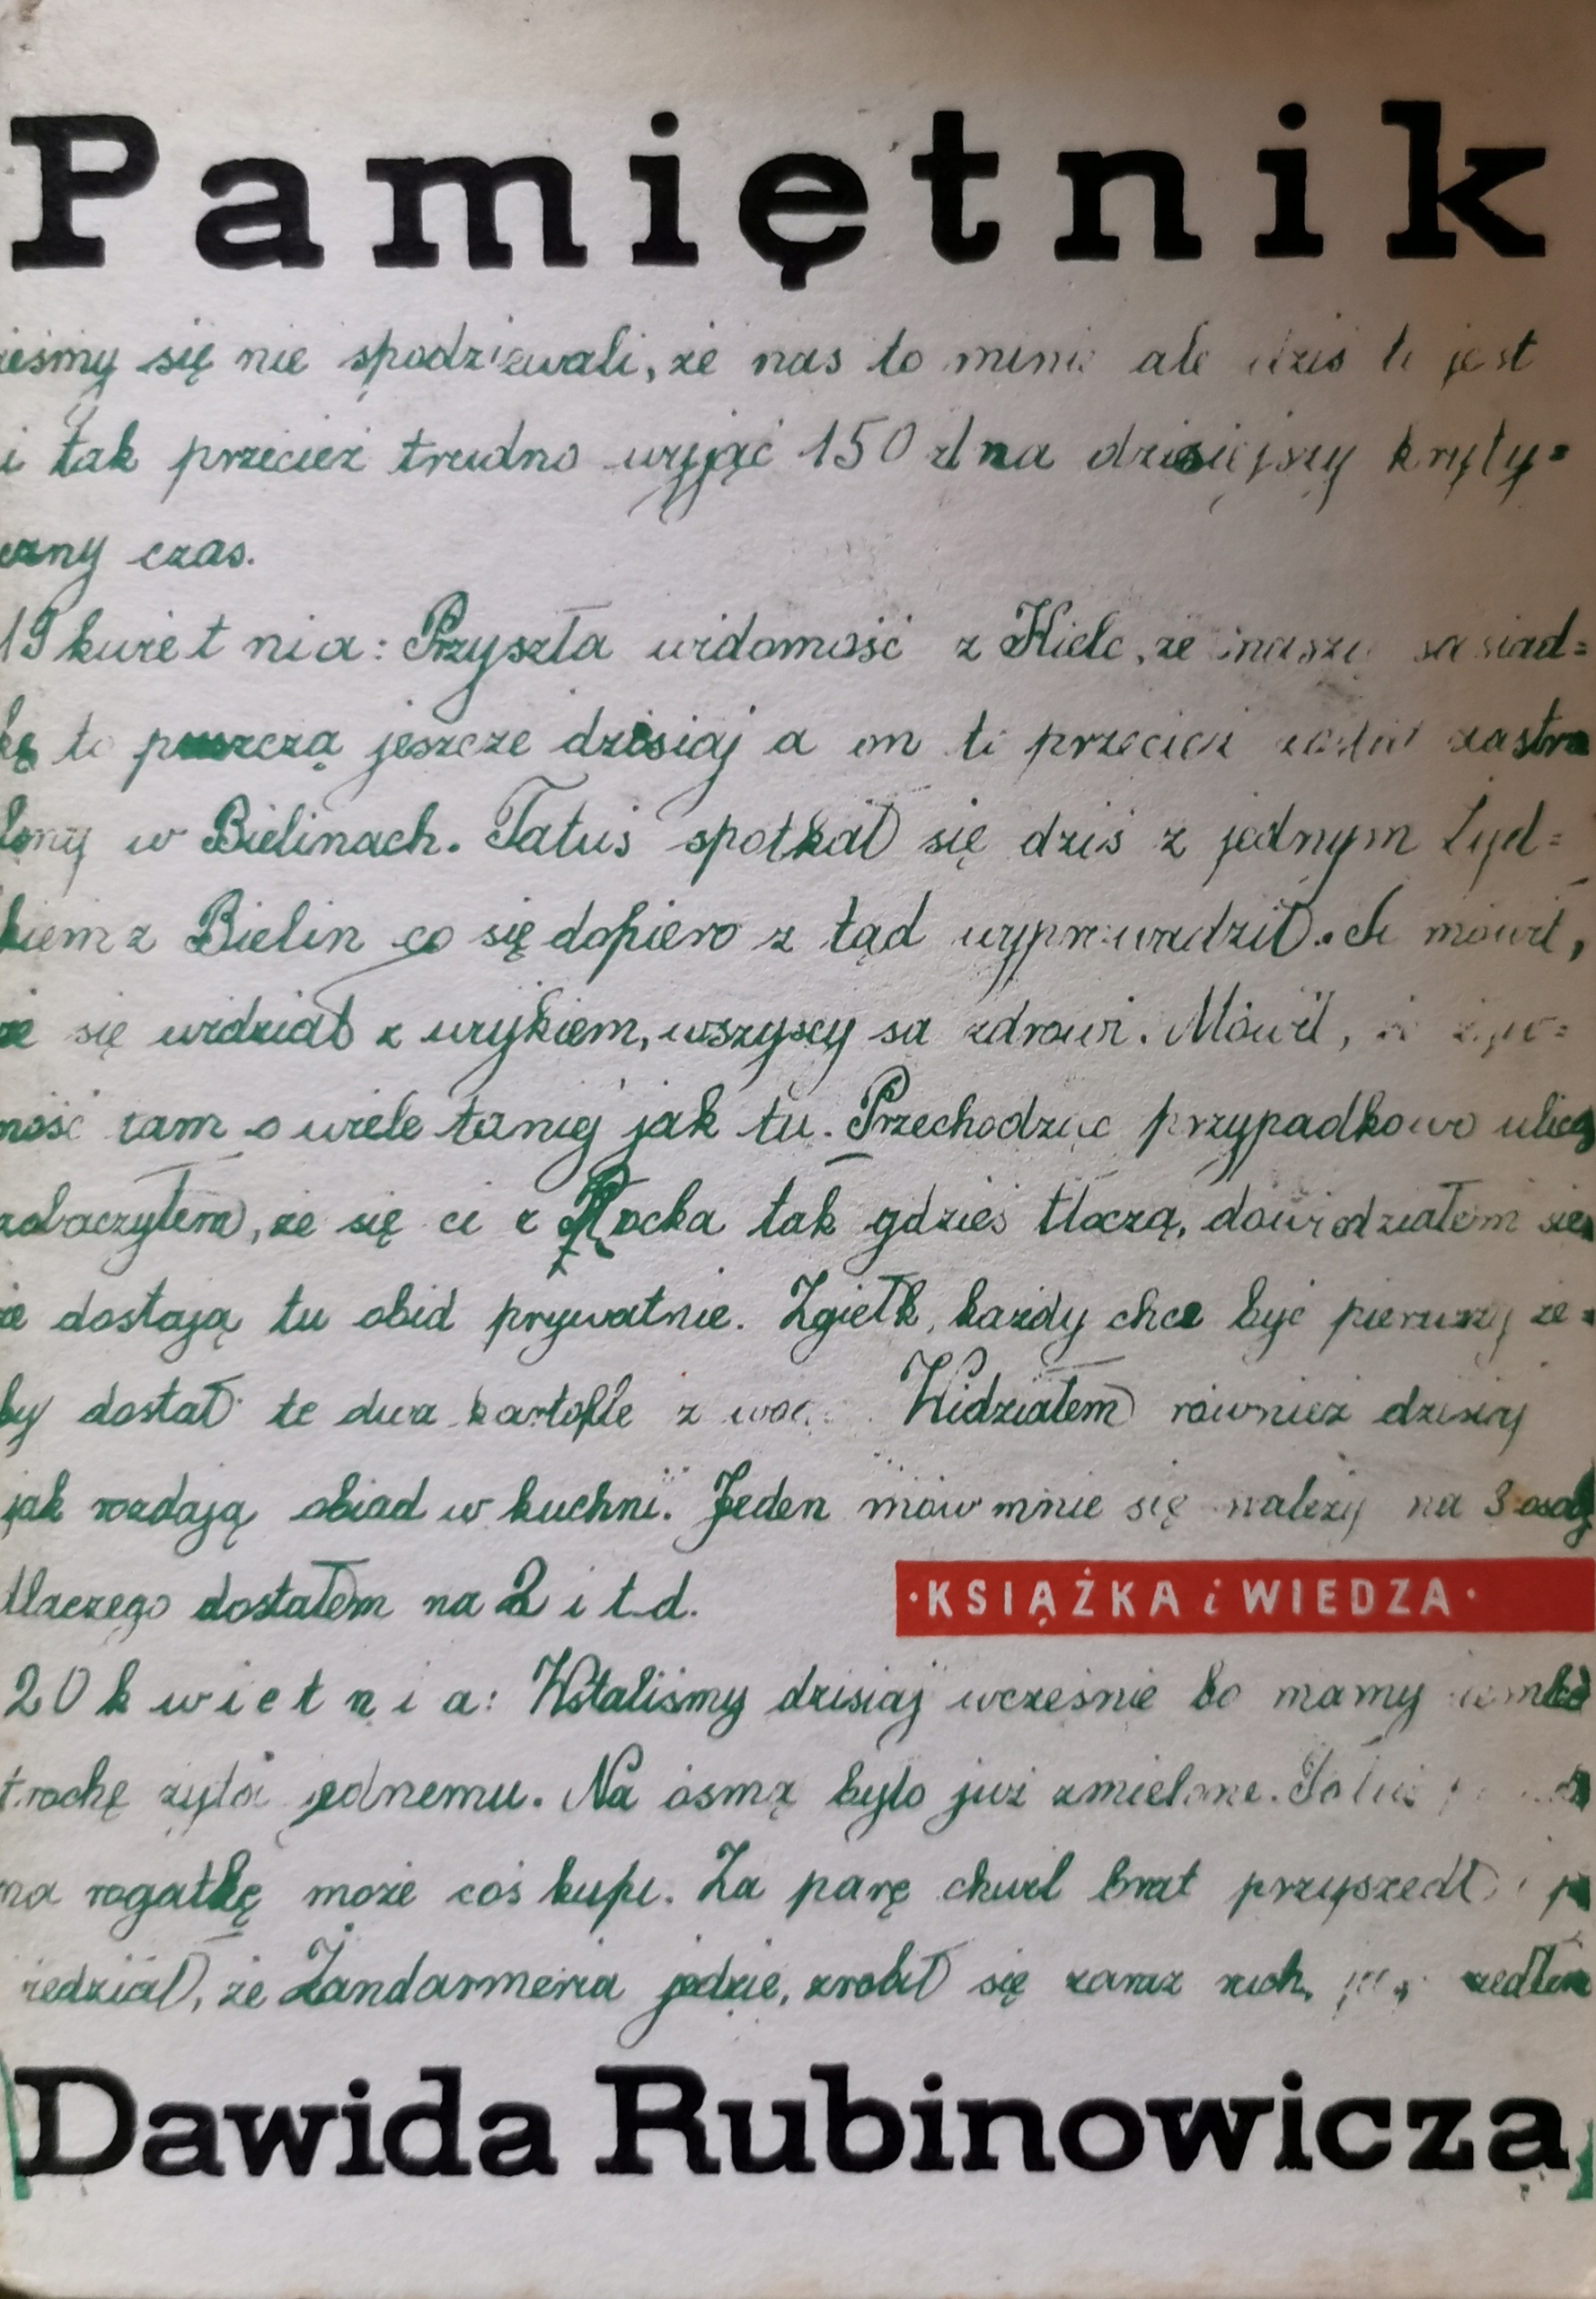 Pamiętnik
eśmy się nie spodziewali, że nas to minie ale dziś to jest
i tak przecież trudno wyjąć 150 zł na dzisiejszy kryty=
czny czas.
19 kwietnia: Przyszła widomość z Kielc, że naszą sasiad=
kę to puszczą jeszcze dzisiaj a on to przecież zastre
lony w Bielinach. Tatuś spotkał się dziś z jednym żyd=
kiem z Bielin co się dopiero z tąd wyprowadził. I mówił,
że się widział z wujkiem, wszyscy sa zdrowi. Mówił,
ność tam o wiele taniej jak tu. Przechodząc przypadkowo ulicą
zobaczyłem, że się ci z Płocka tak gdzieś tłoczą, dowiedziałem się
że dostają tu obid prywatnie. Zgiełk, każdy chce być pierwszy że=
by dostał te dwa kartofle z Widziałem również dzisiaj
jak rozdają obiad w kuchni. Jeden mówi mnie się należy na 3 osoby
dlaczego dostałem na 2 i t.d.
·KSIĄŻKA i WIEDZA·
20 kwietnia: Wstaliśmy dzisiaj wcześnie bo mamy
trochę żyta jednemu. Na ósmą było już zmielone. Tatuś
na rogatkę może coś kupi. Za parę chwil brat przyszedł i
iedział, że Żandarmeria jedzie, zrobił się zaraz ruch,
Dawida Rubinowicza